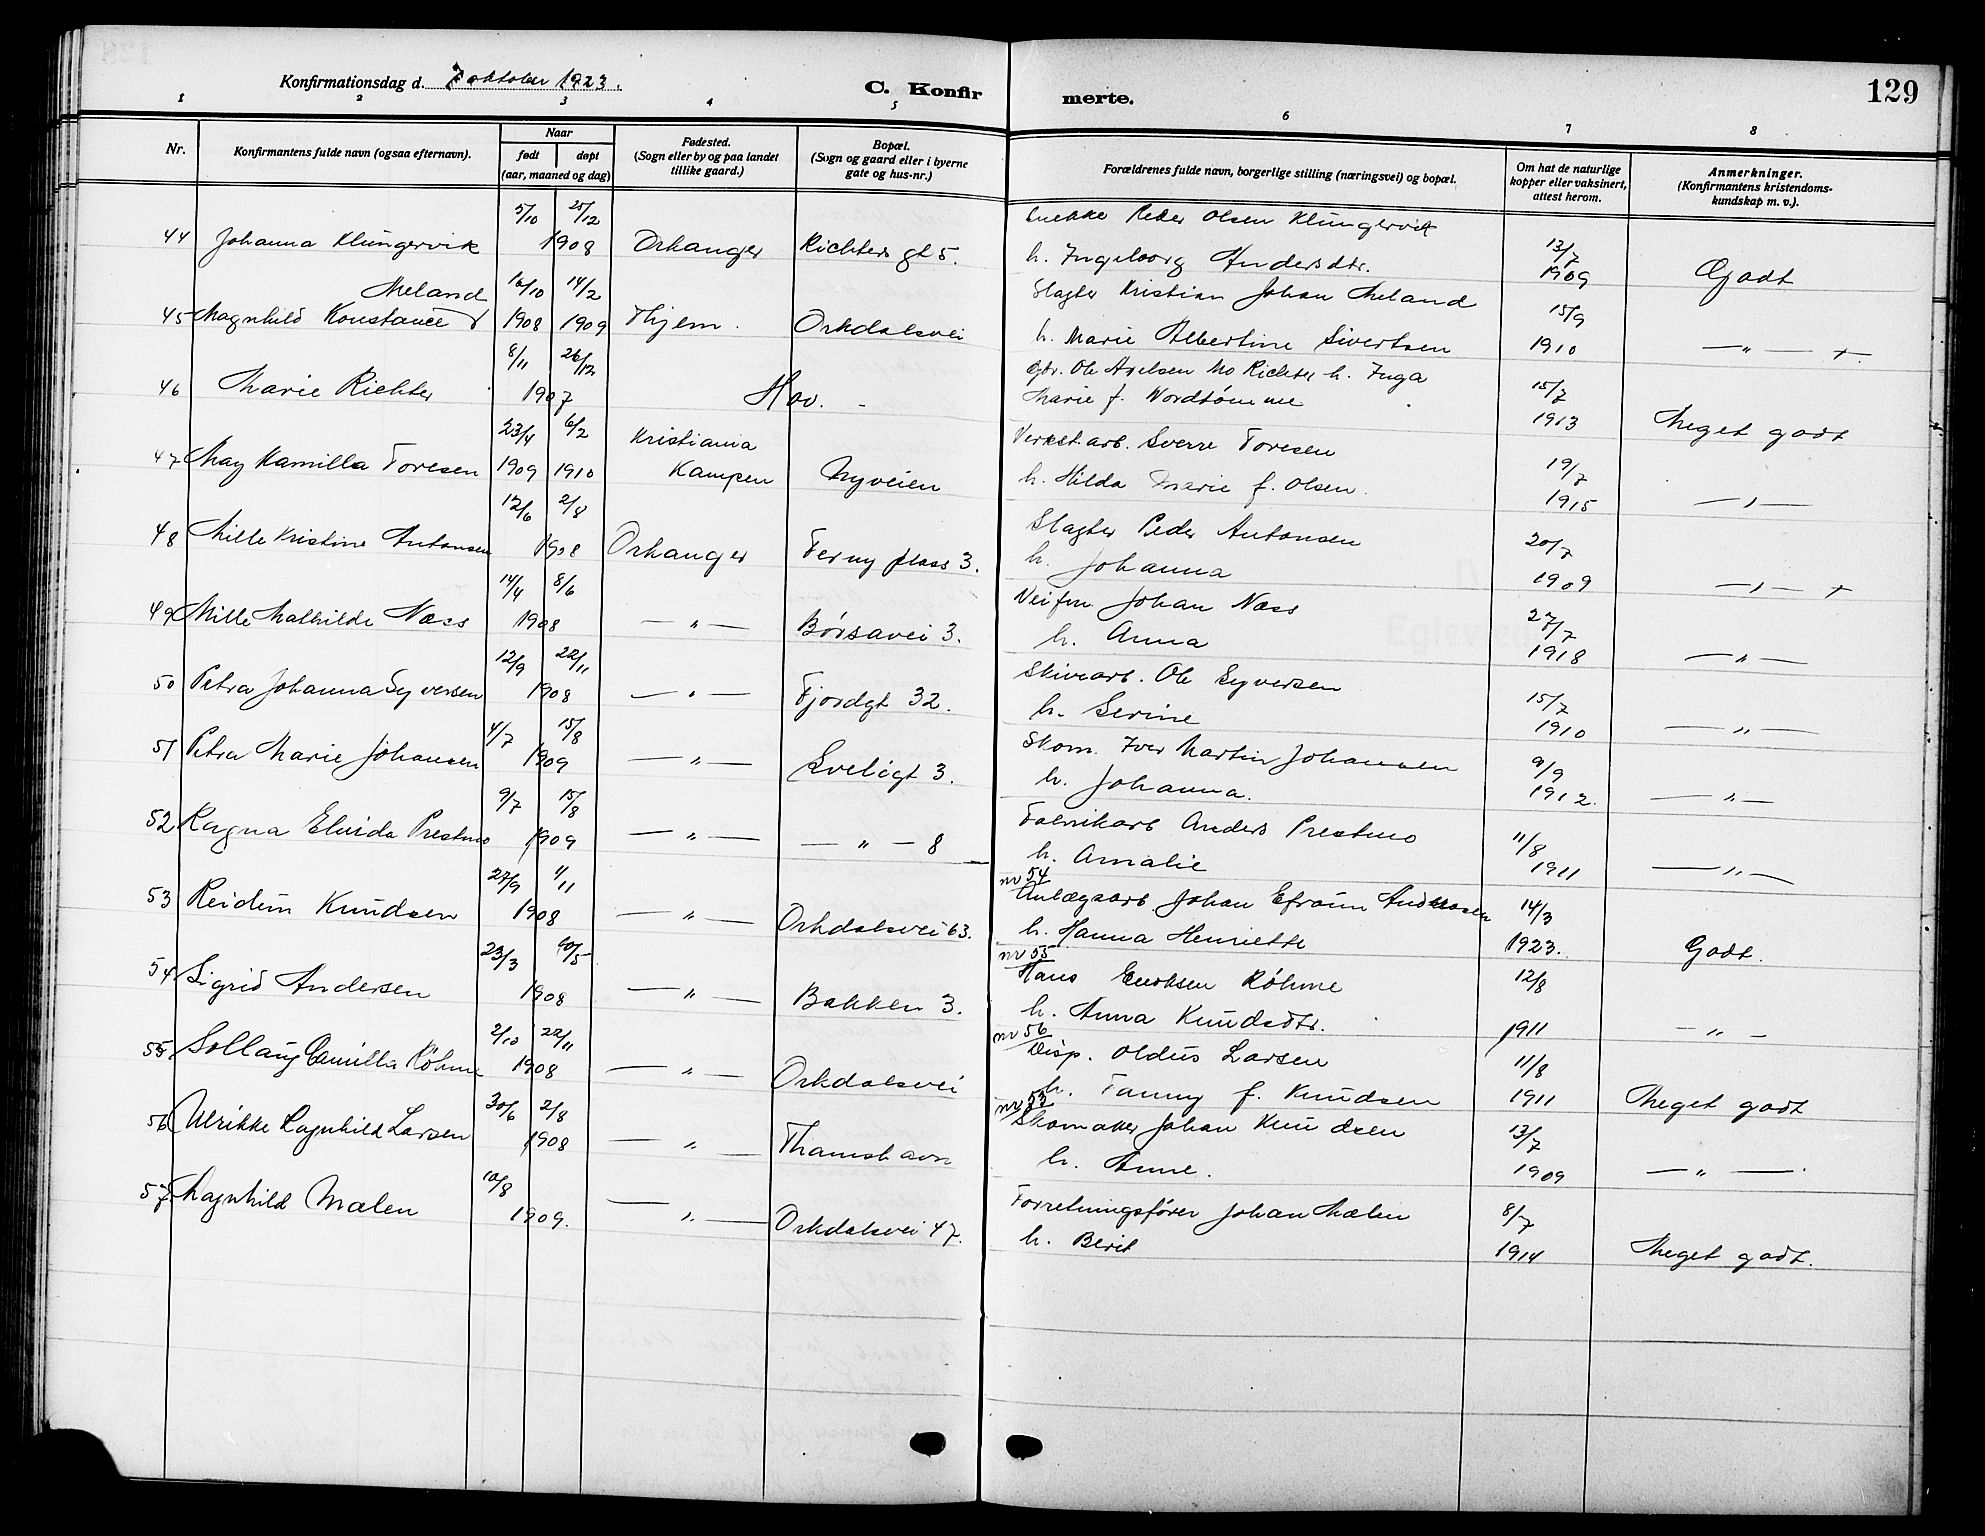 129
Konfirmationsdag d. 7 oktober 1923.
C. Konfirmerte.
1 2 3 4 5 6 7 8
Nr.
Konfirmantens fulde navn (ogsaa efternavn).
Naar
født døpt
(aar, maaned og dag)
Fødested.
(Sogn eller by og paa landet
tillike gaard.)
Bopæl.
(Sogn og gaard eller i byerne
gate og hus-nr.)
Forældrenes fulde navn, borgerlige stilling (næringsvei) og bopæl.
Om hat de naturlige
kopper eller vaksinert,
attest herom.
Anmerkninger.
(Konfirmantens kristendoms-
kundskap m. v.).
5/10 25/12 Peder Olsen Klungervik
44 Johanna Klungervik 1908 Orkanger Richters gt 5. h. Ingeborg Andersdtr. 13/7 1909 Godt
Meland 16/10 14/2 Slagter Kristian Johan Meland 15/9
45 Magnhild Konstance 1908 1909 Hjem. Orkdalsvei h. Marie Albertine Sivertsen 1910 — " — +
8/11 26/12 Gbr. Ole Axelsen Mo Richter h. Inga 15/7
46 Marie Richter 1907 Hov. Marie f. Nordtømme 1913 Meget godt
23/4 6/2 Kristiania Verkst.arb. Sverre Toresen 19/7
47 May Kamilla Toresen 1909 1910 Kampen Nyveien h. Hilda Marie f. Olsen. 1915 — " —
12/6 2/8 Slagter Peder Antonsen 20/7
48 Mille Kristine Antonsen 1908 Orkanger Ferny plass 3. h. Johanna 1909 — " — +
14/4 8/6 Veifm Johan Næss 27/7
49 Mille Mathilde Næss 1908 — " — Børsavei 3. h. Anna 1918 — " —
12/9 22/11 Skivearb. Ole Syversen 15/7
50 Petra Johanna Syversen 1908 — " — Fjordgt 32. h. Serine 1910 — " —
4/7 15/8 Skom. Iver Martin Johansen 9/9
51 Petra Marie Johansen 1909 — " — Sveligt 3. h. Johanna. 1912. — " —
9/7 15/8 Fabrikarb Anders Prestmo 11/8
52 Ragna Elvida Prestmo 1909 — " — — " — 8 h. Amalie 1911 — " —
27/9 1/11 nr 54 Anlægsarb. Johan Efraim Andersen 14/3
53 Reidun Knudsen 1908 — " — Orkdalsvei 63. h. Hanna Henriette 1923. Godt.
23/3 nr 55 Hans Eriksen Røhme 12/8
54 Sigrid Andersen 1908 — " — Bakken 3. h. Anna Knudsdtr. 1911 — " —
2/10 22/11 nr 56 Disp. Oldus Larsen 11/8
55 Sollaug Camilla Röhme 1908 — " — Orkdalsvei h. Fanny f. Knudsen 1911 Meget godt
30/6 2/8 nr 53 Skomaker Johan Knudsen 13/7
56 Ulrikke Ragnhild Larsen 1908 — " — Thamshavn h. Anne. 1909 — " —
10/8 Forretningsfører Johan Mælen 8/7
57 Magnhild Mælen 1909. — " — Orkdalsvei 47. h. Berit 1914 Meget godt.